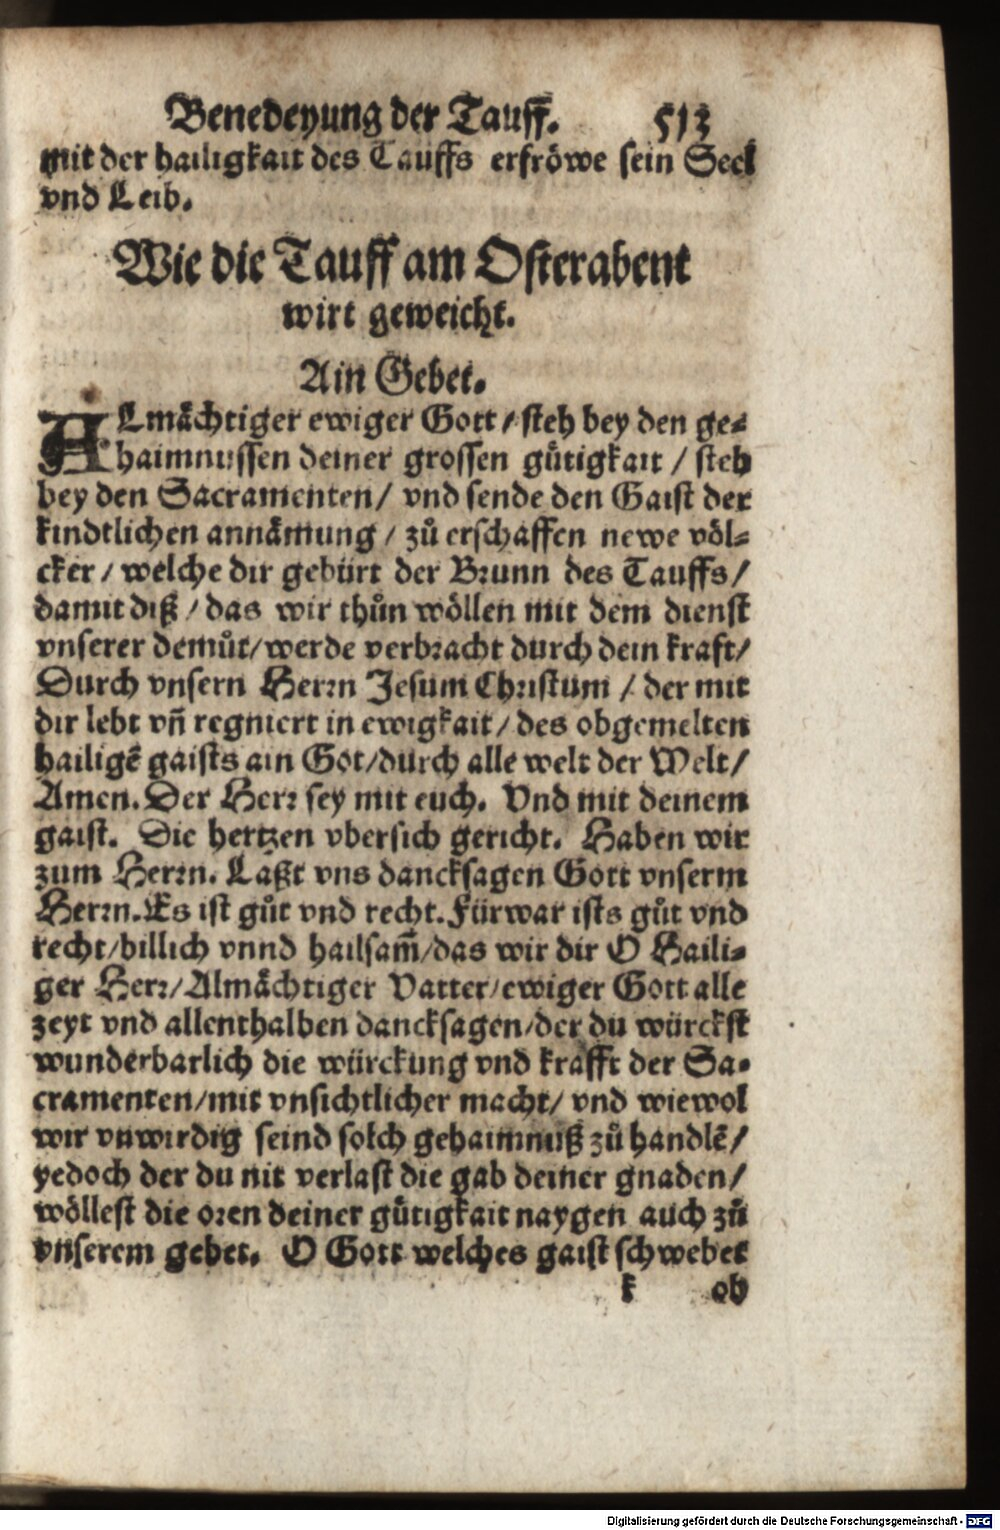 Benedeyung der Tauff. 513
mit der hailigkait des Tauffs erfröwe sein Seel
vnd Leib.
Wie die Tauff am Osterabent
wirt geweicht.
Ain Gebet.
ALmächtiger ewiger Gott / steh bey den ge⸗
haimnussen deiner grossen gütigkait / steh
bey den Sacramenten / vnd sende den Gaist der
kindtlichen annämung / zů erschaffen newe völ⸗
cker / welche dir gebürt der Brunn des Tauffs /
damit diß / das wir thůn wöllen mit dem dienst
vnserer demůt / werde verbracht durch dein kraft /
Durch vnsern Herrn Jesum Christum / der mit
dir lebt vñ regniert in ewigkait / des obgemelten
hailigē gaists ain Got / durch alle welt der Welt /
Amen. Der Herr sey mit euch. Vnd mit deinem
gaist. Die hertzen vbersich gericht. Haben wir
zum Herrn. Laßt vns dancksagen Gott vnserm
Herrn. Es ist gůt vnd recht. Fürwar ists gůt vnd
recht / billich vnnd hailsam̃ / das wir dir O Haili⸗
ger Herr / Almächtiger Vatter / ewiger Gott alle
zeyt vnd allenthalben dancksagen / der du würckst
wunderbarlich die würckung vnd krafft der Sa⸗
cramenten / mit vnsichtlicher macht / vnd wiewol
wir vnwirdig seind solch gehaimnuß zů handlē /
yedoch der du nit verlast die gab deiner gnaden /
wöllest die oren deiner gütigkait naygen auch zů
vnserem gebet. O Gott welches gaist schwebet
k ob
Digitalisierung gefördert durch die Deutsche Forschungsgemeinschaft - DFG